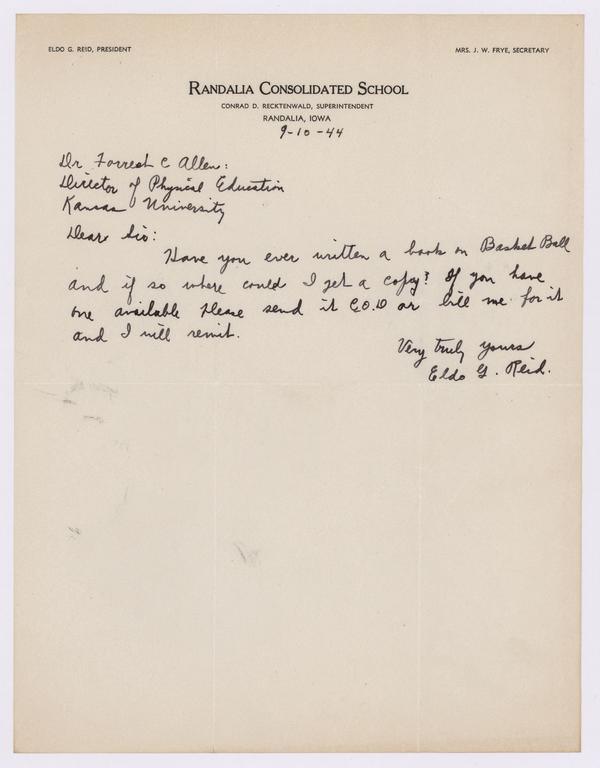 ELDO G. REID, PRESIDENT
MRS. J. W. FRYE, SECRETARY
RANDALIA CONSOLIDATED SCHOOL
CONRAD D. RECKTENWALD, SUPERINTENDENT
RANDALIA, IOWA
9-10-44
Dr Forrest C Allen:
Director of Physical Education
Kansas University
Dear Sir:
Have you ever written a book on Basket Ball
and if so where could I get a copy? If you have
one available please send it C.O.D or bill me for it
and I will remit.
Very truly yours
Eldo G. Reid.